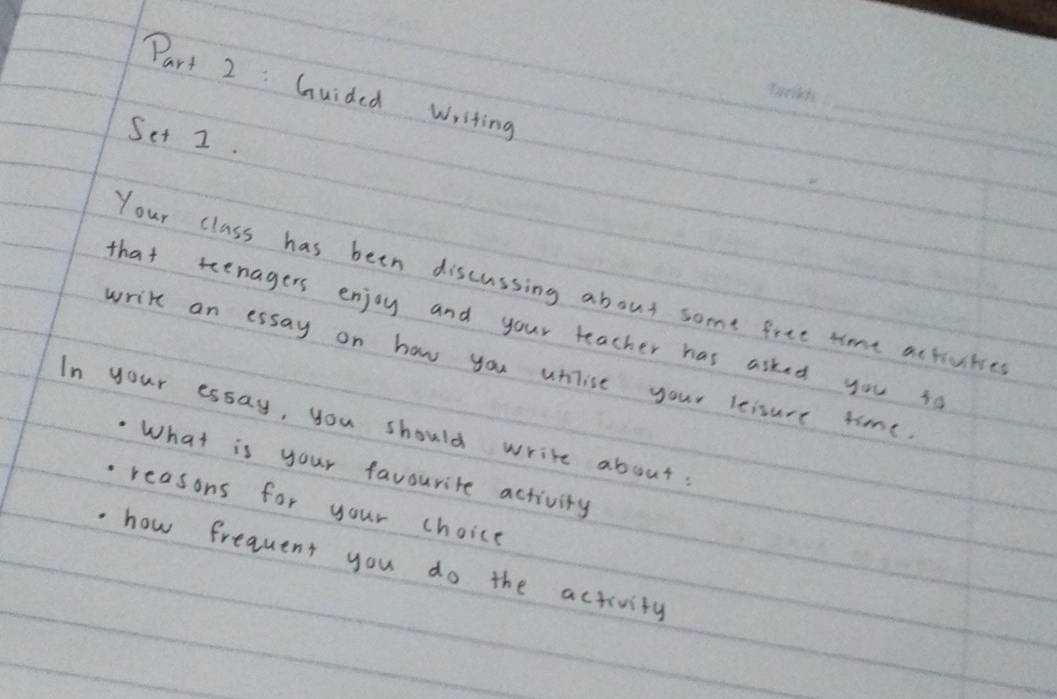 Tarikh
Part 2 : Guided Writing
Set 1.
Your class has been discussing about some free time activities
that teenagers enjoy and your teacher has asked you to
write an essay on how you utilise your leisure time.
In your essay, you should write about :
• What is your favourite activity
• reasons for your choice
• how frequent you do the activity